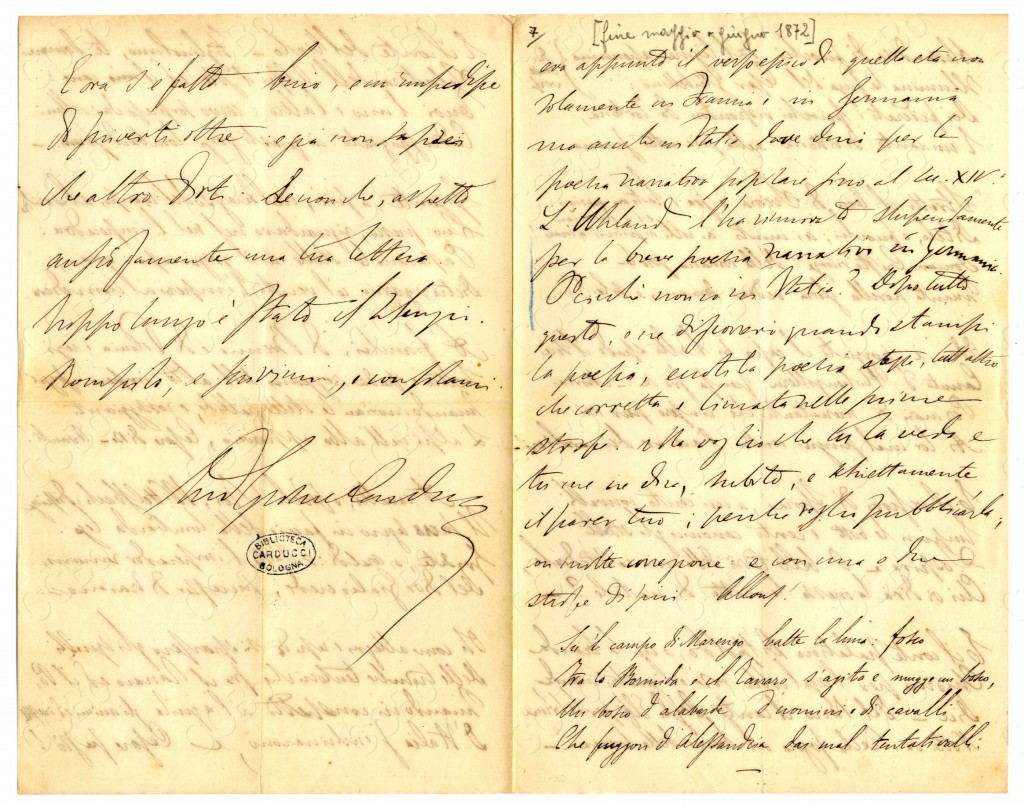 E ora s'è fatto buio, e m'impedisce
di scriverti oltre: e già non saprei
che altro dirti. Se non che, aspetto
ansiosamente una tua lettera.
Troppo lungo è stato il silenzio.
Rompilo, e scrivimi, e consolami.
Tuo Giosue Carducci
BIBLIOTECA
CARDUCCI
BOLOGNA
7/ [fine maggio o giugno 1872]
era appunto il verso epico di quella età non
solamente in Francia e in Germania
ma anche in Italia dove durò per la
poesia narrativa popolare fino al sec. XIV.°
L'Uhland l'ha rinnovato stupendamente
per la breve poesia narrativa in Germania.
Perché non io in Italia? Dopo tutto
questo, e ne discorrerò quando stampi
la poesia, eccoti la poesia stessa, tutt'altro
che corretta e limata nelle prime
strofe. Ma voglio che tu la veda e
tu me ne dica, subito, e schiettamente
il parer tuo; perché voglio pubblicarla,
con molte correzione e con una o due
strofe di più. Allons!
Su 'l campo di Marengo batte la luna: fosco
Tra la Bormida e il Tanaro s'agita e mugge un bosco,
Un bosco d'alabarde, d'uomini e di cavalli,
Che fuggon d'Alessandria dai mal tentati valli.